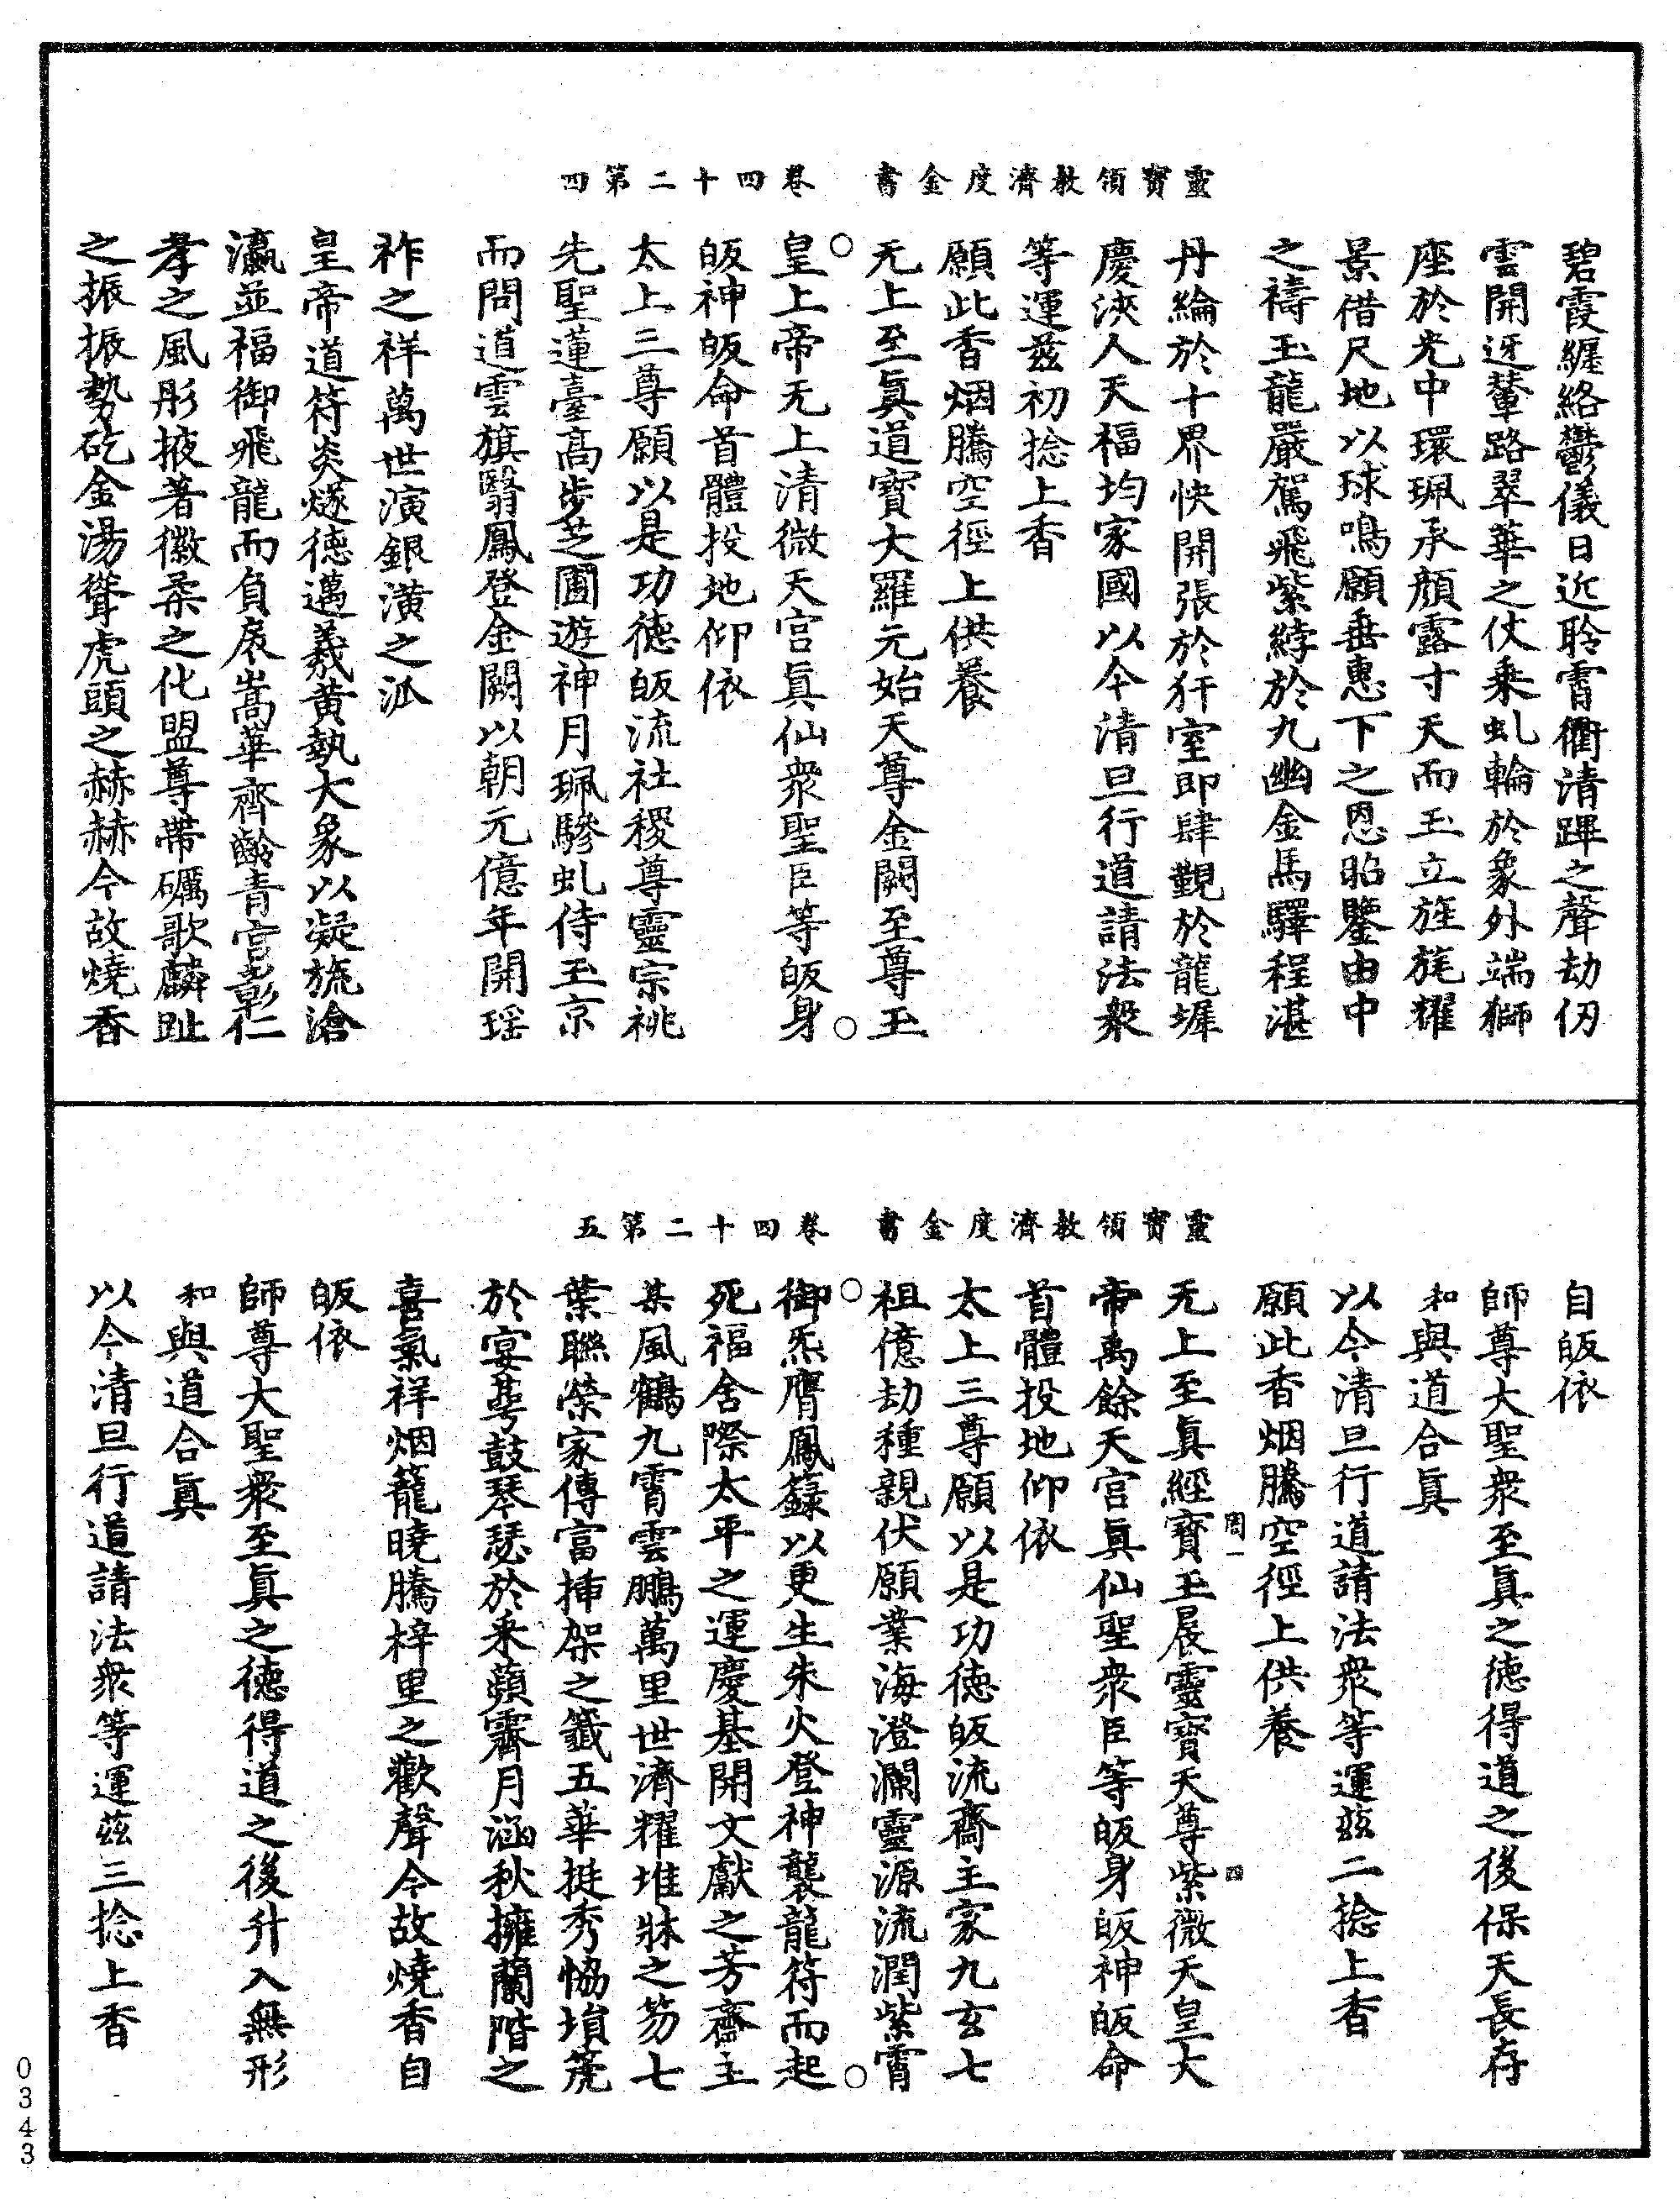 靈寶領教濟度金書　卷四十二第四
碧霞纏絡鬱儀日近聆霄衢清蹕之聲劫仞
雲開迓輦路翠華之仗乘虬輪於象外端獅
座於光中環珮承顔露寸天而玉立旌旄耀
景借尺地以球鳴願垂惠下之恩昭鑒由中
之禱玉龍嚴駕飛紫綍於九幽金馬驛程湛
丹綸於十界快開張於犴室即肆覲於龍墀
慶浹人天福均家國以今清旦行道請法衆
等運茲初捻上香
願此香烟騰空徑上供養
无上至眞道寶大羅元始天尊金闕至尊玉
皇上帝无上清微天宫眞仙衆聖臣等皈身
皈神皈命首體投地仰依
太上三尊願以是功德皈流社稷尊靈宗祧
先聖蓮臺髙步芝圃遊神月珮驂虬侍玉京
而問道雲旗翳鳳登金闕以朝元億年開瑶
祚之祥萬世演銀潢之派
皇帝道符炎燧德邁羲黄執大象以凝旒滄
瀛並福御飛龍而負扆嵩華齊齡青宫彰仁
孝之風彤掖著徽柔之化盟尊帶礪歌麟趾
之振振勢矻金湯聳虎頭之赫赫今故燒香
靈寶領教濟度金書　卷四十二第五
自皈依
師尊大聖衆至眞之德得道之後保天長存
和與道合眞
以今清旦行道請法衆等運茲二捻上香
願此香烟騰空徑上供養
无上至眞經寶玉晨靈寶天尊紫微天皇大
帝禹餘天宫眞仙聖衆臣等皈身皈神皈命
首體投地仰依
太上三尊願以是功德皈流齋主家九玄七
祖億劫種親伏願業海澄瀾靈源流潤紫霄
御炁膺鳳籙以更生朱火登神襲龍符而起
死福舍際太平之運慶基開文獻之芳齋主
某風鶴九霄雲鵬萬里世濟耀堆牀之笏七
葉聯榮家傳富揷架之籤五華挺秀恊塤箎
於宴萼鼓琴瑟於采蘋霽月涵秋擁蘭階之
喜氣祥烟籠曉騰梓里之歡聲今故燒香自
皈依
師尊大聖衆至眞之德得道之後升入無形
和與道合眞
以今清旦行道請法衆等運茲三捻上香
0343